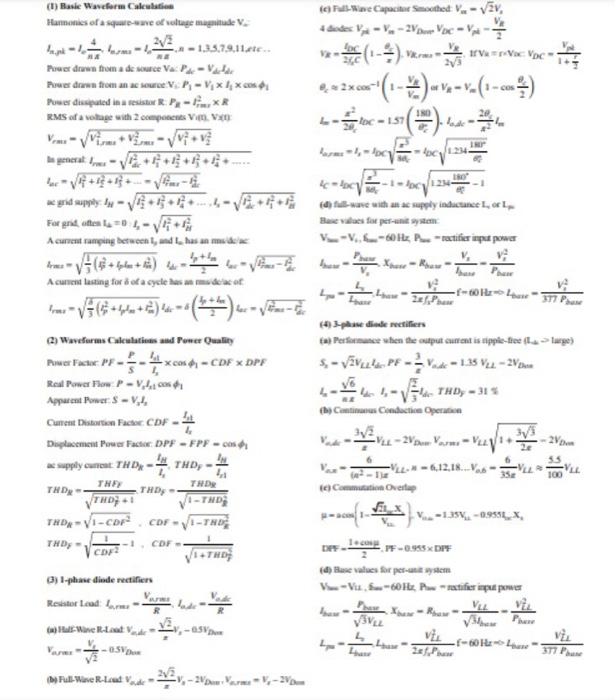 (1) Basic Waveform Calculation
Harmonics of a square-wave of voltage magnitude V
I_{n,pk} = I_o 4/(nπ), I_{n,rms} = I_o 2√2/(nπ), n = 1,3,5,7,9,11,etc..
Power drawn from a dc source Vdc: P_dc = V_dc I_dc
Power drawn from an ac source V: P_1 = V_1 × I_1 × cos ϕ_1
Power dissipated in a resistor R: P_R = I²_rms × R
RMS of a voltage with 2 components V1(t), V2(t):
V_rms = √(V²_{1,rms} + V²_{2,rms}) = √(V_1² + V_2²)
In general: I_rms = √(I²_dc + I_1² + I_2² + I_3² + I_4² + .....
I_ac = √(I_1² + I_2² + I_3² + ... = √(I²_rms − I²_dc)
ac grid supply: I_H = √(I_2² + I_3² + I_4² + ... , I_s = √(I²_dc + I_1² + I²_H)
For grid, often I_dc = 0 : I_s = √(I_1² + I²_H)
A current ramping between I_p and I_m has an rms/dc/ac:
I_rms = √(1/3 (I_p² + I_pI_m + I_m²)) I_dc = (I_p + I_m)/2 I_ac = √(I²_rms − I²_dc)
A current lasting for δ of a cycle has an rms/dc/ac of:
I_rms = √(δ/3 (I_p² + I_pI_m + I_m²)) I_dc = δ((I_p + I_m)/2) I_ac = √(I²_rms − I²_dc)
(2) Waveforms Calculations and Power Quality
Power Factor: PF = P/S = I_{s1}/I_s × cos ϕ_1 = CDF × DPF
Real Power Flow: P = V_s I_{s1} cos ϕ_1
Apparent Power: S = V_s I_s
Current Distortion Factor: CDF = I_{s1}/I_s
Displacement Power Factor: DPF = FPF = cos ϕ_1
ac supply current: THD_R = I_H/I_s, THD_F = I_H/I_{s1}
THD_R = THD_F/√(THD²_F + 1), THD_F = THD_R/√(1 − THD²_R)
THD_R = √(1 − CDF²), CDF = √(1 − THD²_R)
THD_F = √(1/CDF² − 1), CDF = 1/√(1 + THD²_F)
(3) 1-phase diode rectifiers
Resistor Load: I_{o,rms} = V_{o,rms}/R, I_{o,dc} = V_{o,dc}/R
(a) Half-Wave R-Load: V_{o,dc} = √2/π V_s − 0.5V_Don
V_{o,rms} = V_s/√2 − 0.5V_Don
(b) Full-Wave R-Load: V_{o,dc} = 2√2/π V_s − 2V_Don, V_{o,rms} = V_s − 2V_Don
(c) Full-Wave Capacitor Smoothed: V_m = √2V_s
4 diodes: V_pk = V_m − 2V_Don, V_DC = V_pk − V_R/2
If V_R = r×V_DC: V_DC = V_pk/(1 + r/2)
θ_c ≈ 2 × cos⁻¹(1 − V_R/V_m) or V_R = V_m(1 − cos θ_c/2)
(d) full-wave with an ac supply inductance L_s or L_pu
Base values for per-unit system:
V_base = V_s, f_base = 60 Hz, P_base = rectifier input power
I_base = P_base/V_s, X_base = R_base = V_s/I_base = V_s²/P_base
L_pu = L_s/L_base, L_base = V_s²/(2πf_sP_base) f=60 Hz => L_base = V_s²/(377 P_base)
(4) 3-phase diode rectifiers
(a) Performance when the output current is ripple-free (L_dc -> large)
S_s = √2V_LL I_dc, PF = 3/π, V_{o,dc} = 1.35 V_LL − 2V_Don
I_n = √6/(nπ) I_dc, I_s = √(2/3) I_dc, THD_F = 31 %
(b) Continuous Conduction Operation
V_{o,dc} = 3√2/π V_LL − 2V_Don, V_{o,rms} = V_LL √(1 + 3√3/2π) − 2V_Don
V_{o,n} = 6/((n² − 1)π) V_LL, n = 6,12,18... V_{o,6} = 6/35π V_LL ≈ 5.5/100 V_LL
(c) Commutation Overlap
DPF = (1 + cosμ)/2, PF = 0.955 × DPF
(d) Base values for per-unit system
V_base = V_LL, f_base = 60 Hz, P_base = rectifier input power
I_base = P_base/(√3V_LL), X_base = R_base = V_LL/(√3I_base) = V²_LL/P_base
L_pu = L_s/L_base, L_base = V²_LL/(2πf_sP_base) f=60 Hz => L_base = V²_LL/(377 P_base)